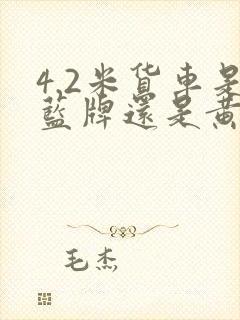 4.2米货车是
藍牌還是黄
毛杰